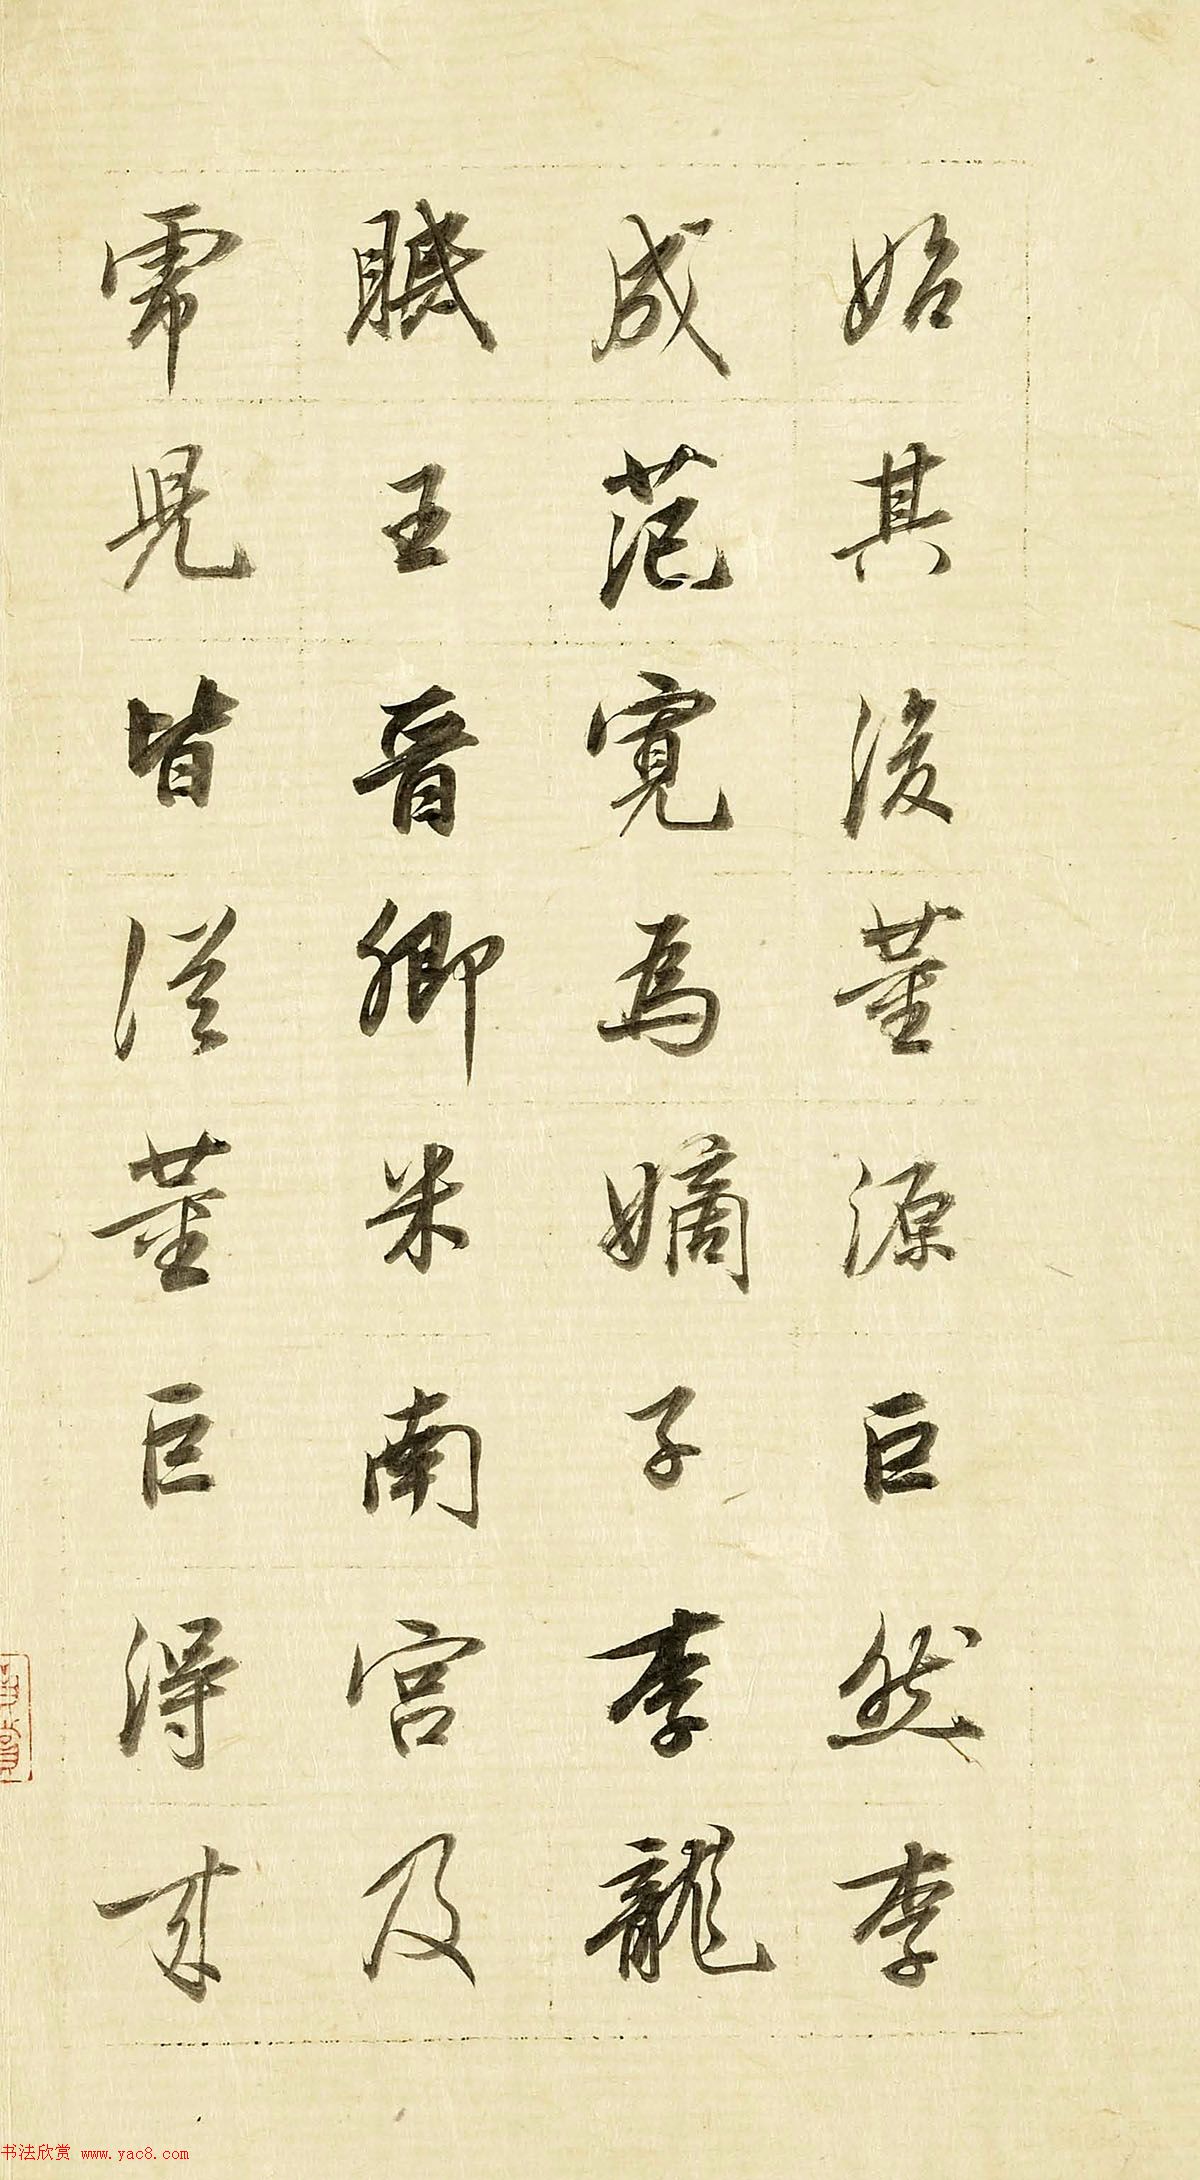 始其後董源巨然李
成范寬為嫡子李龍
眠王晉卿米南宮及
虎兒皆從董巨得來
书法欣赏 www.yac8.com